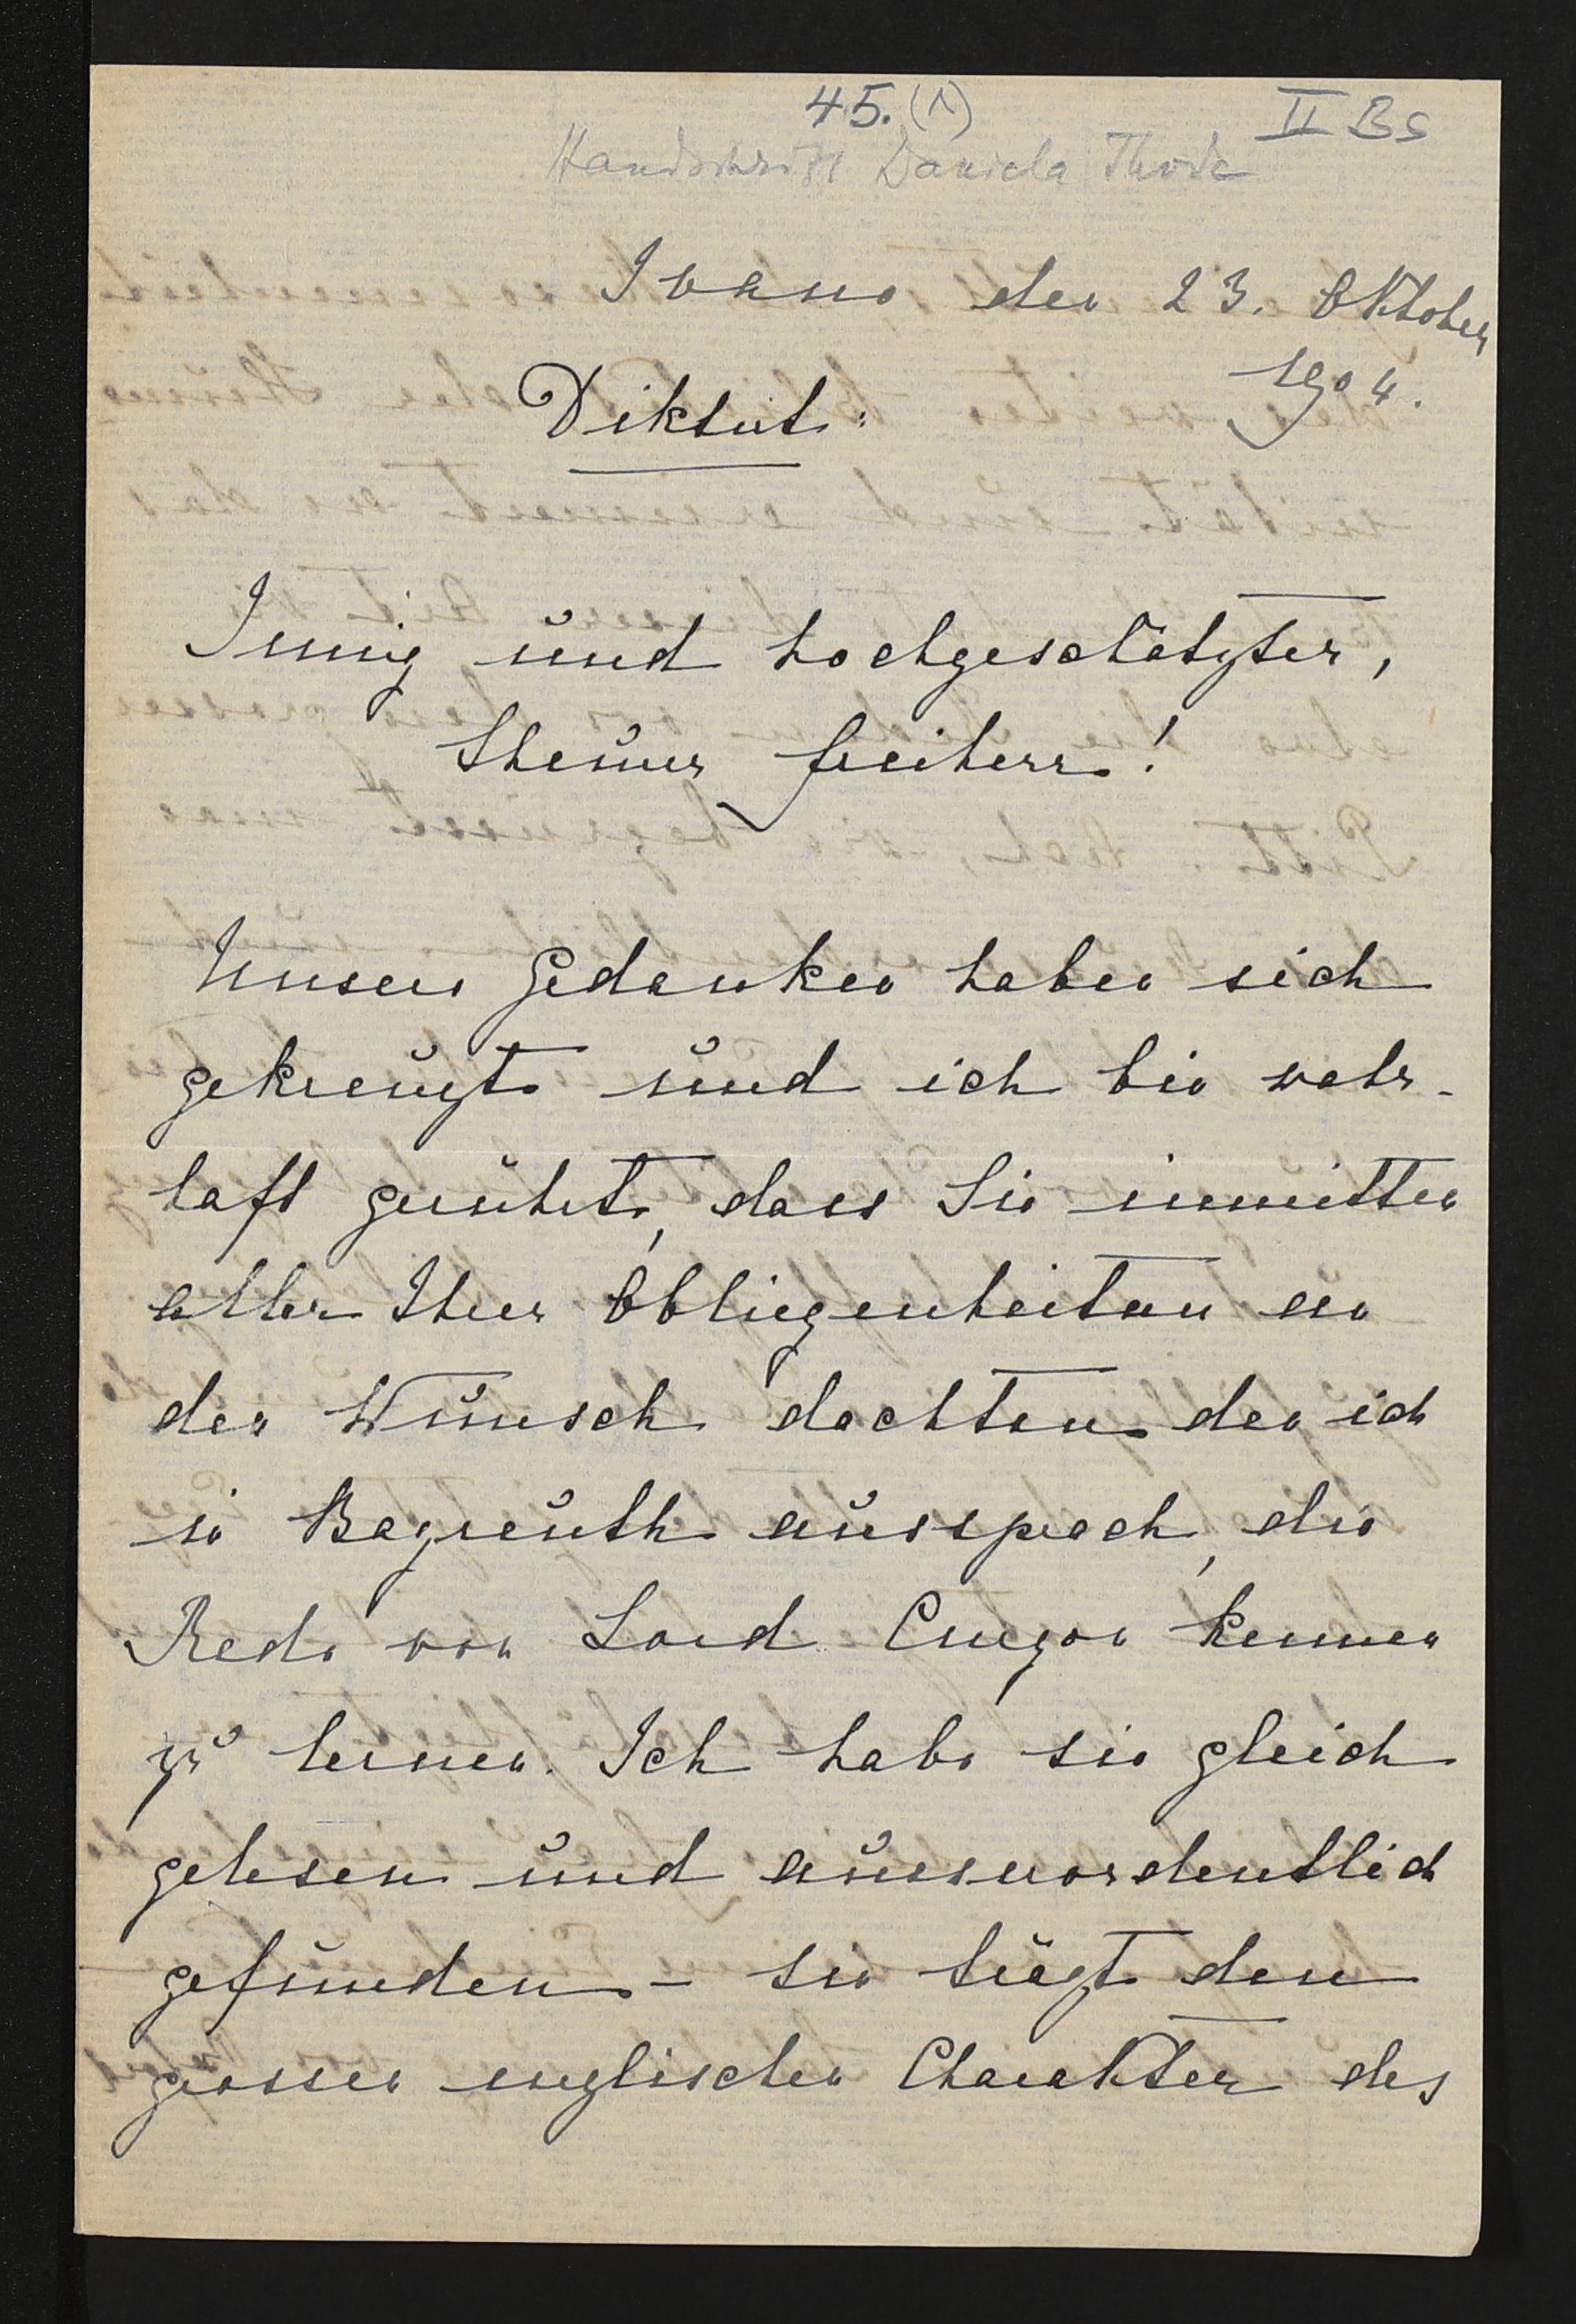 45. (1) II B5
Handschrift Daniela Thode
Ivano den 23. Oktober
1904.
Diktat:
Innig und hochgeschätzter,
theurer Freiherr!
Unsere Gedanken haben sich
gekreuzt und ich bin wahr-
haft gerührt, dass Sie inmitten
aller Ihrer Obliegenheiten an
den Wunsch dachten den ich
in Bayreuth aussprach, die
Rede von Lord Curzon kennen
zu lernen. Ich habe sie gleich
gelesen und ausserordentlich
gefunden - sie trägt den
grossen englischen Charakter des